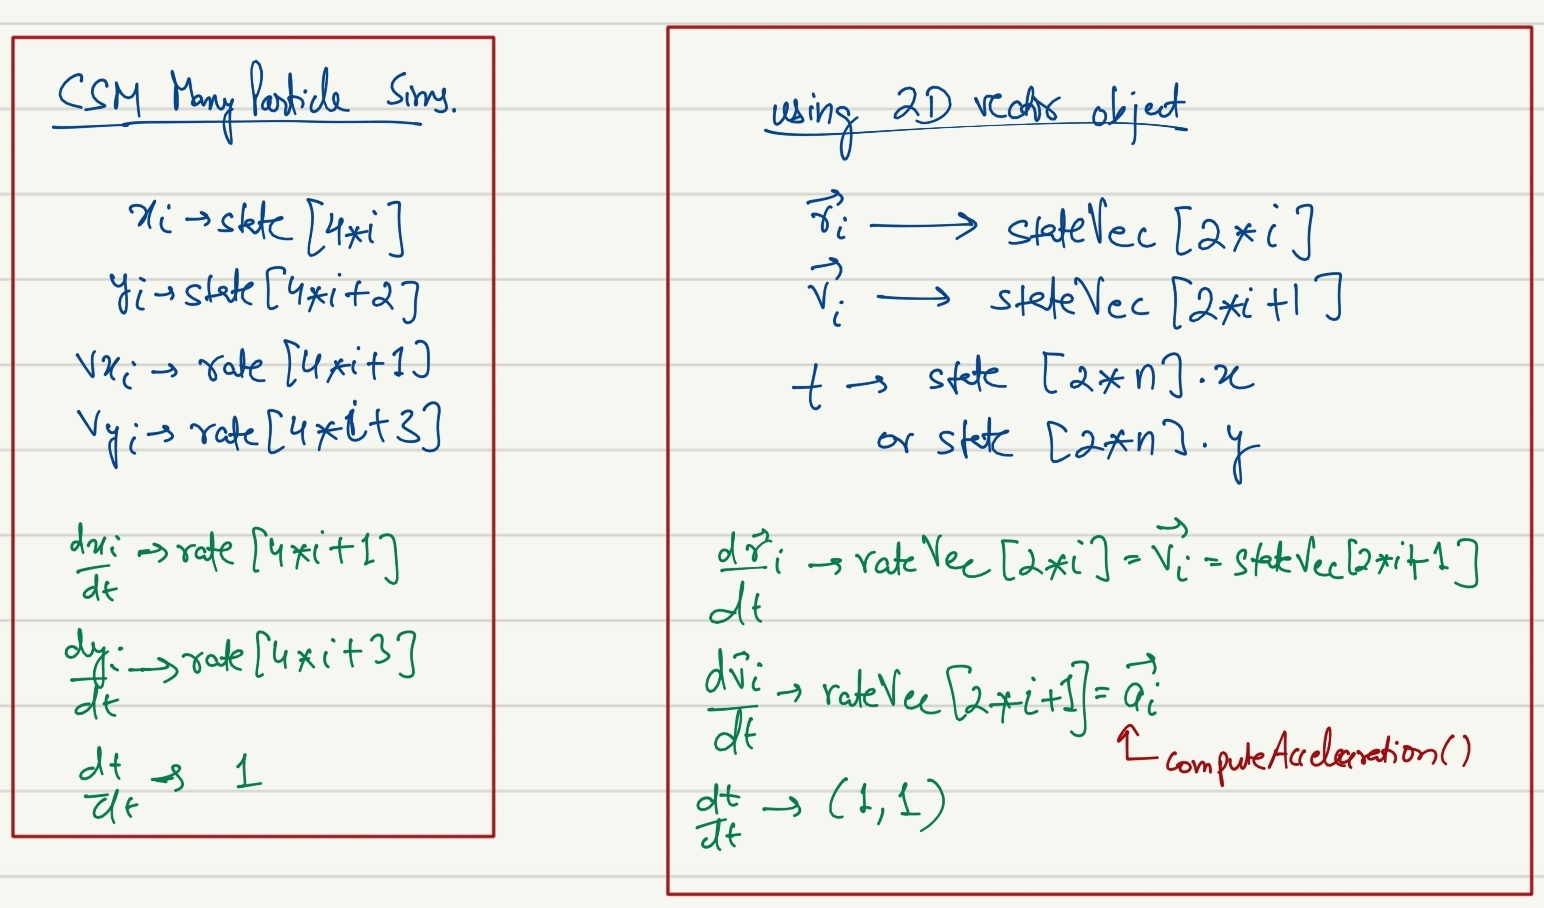 CSM Many Particle Sims.
x_i → state [4*i]
y_i → state [4*i+2]
vx_i → rate [4*i+1]
vy_i → rate [4*i+3]
dx_i/dt → rate [4*i+1]
dy_i/dt → rate [4*i+3]
dt/dt → 1
using 2D vector object
r⃗_i → stateVec [2*i]
v⃗_i → stateVec [2*i+1]
t → state [2*n].x
or state [2*n].y
dr⃗_i/dt → rateVec [2*i] = v⃗_i = stateVec[2*i+1]
dv⃗_i/dt → rateVec [2*i+1] = a⃗_i
↑ computeAcceleration()
dt/dt → (1,1)